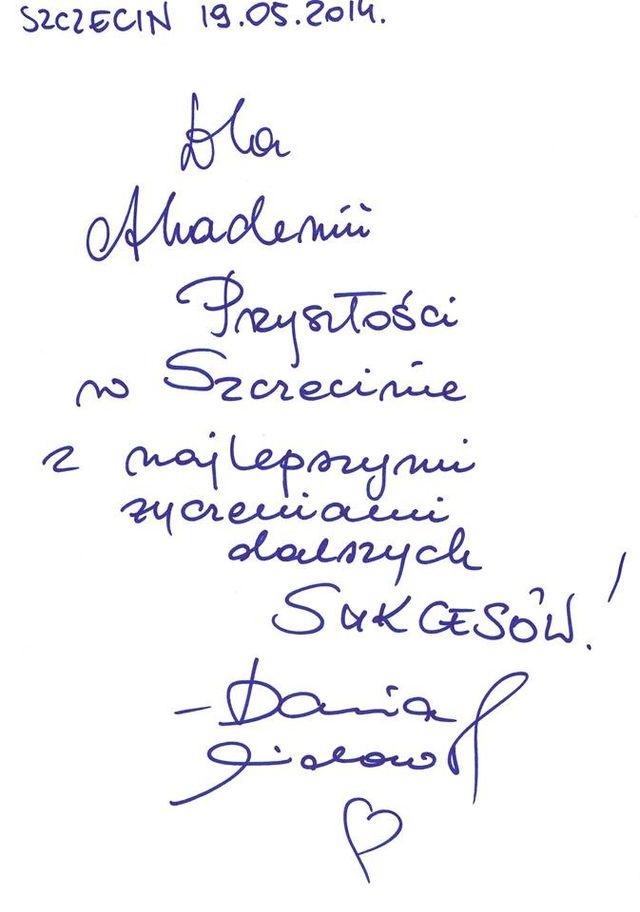 SZCZECIN 19.05.2014.
Dla
Akademii
Przyszłości
w Szczecinie
z najlepszymi
zyczeniami
dalszych
SUKCESÓW!
- Daria